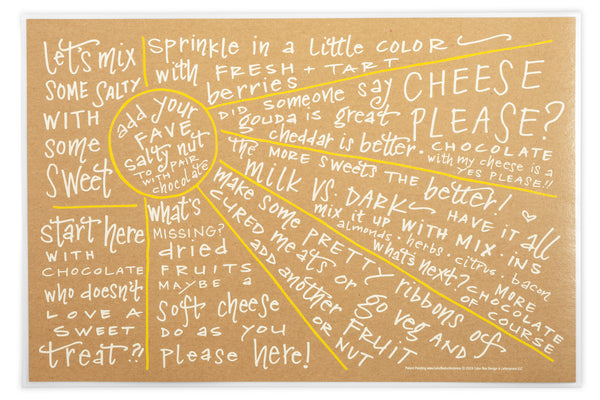 let's mix
SOME SALTY
WITH
some
sweet
sprinkle in a little COLOR
with FRESH + TART
berries
DID someone say
gouda is great
cheddar is better.
CHEESE
PLEASE?
CHOCOLATE
with my cheese is a
YES PLEASE!!
add your
FAVE
salty nut
TO PAIR
WITH
chocolate
the MORE sweets THE better!
milk VS. DARK
HAVE IT all
mix it up WITH MIX-INS
almonds, herbs, citrus, bacon
what's next? MORE
CHOCOLATE
OF COURSE
make some PRETTY ribbons of
CURED meats or go veg AND
ADD another FRUIT
OR NUT
start here
WITH
CHOCOLATE
who doesn't
LOVE A
SWEET
treat?!
what's
MISSING?
dried
FRUITS
MAYBE a
soft cheese
DO AS YOU
please here!